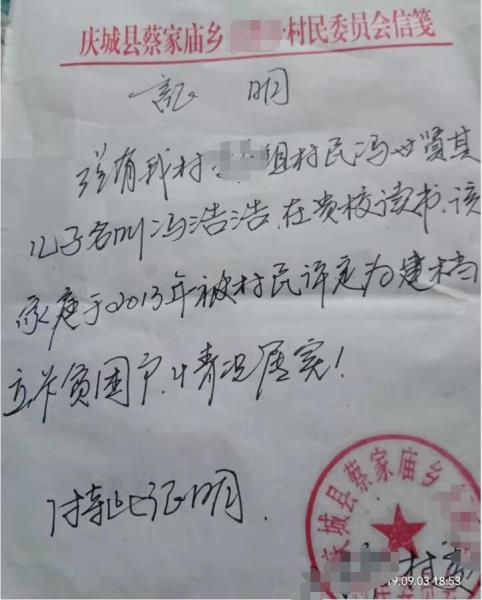 庆城县蔡家庙乡 村民委员会信笺
证 明
兹有我村 组村民冯世贤其
儿子名叫冯浩浩,在贵校读书,该
家庭于2013年被村民评定为建档
立卡贫困户,情况属实!
特此证明.
庆城县蔡家庙乡
村委
19.09.03 18:53